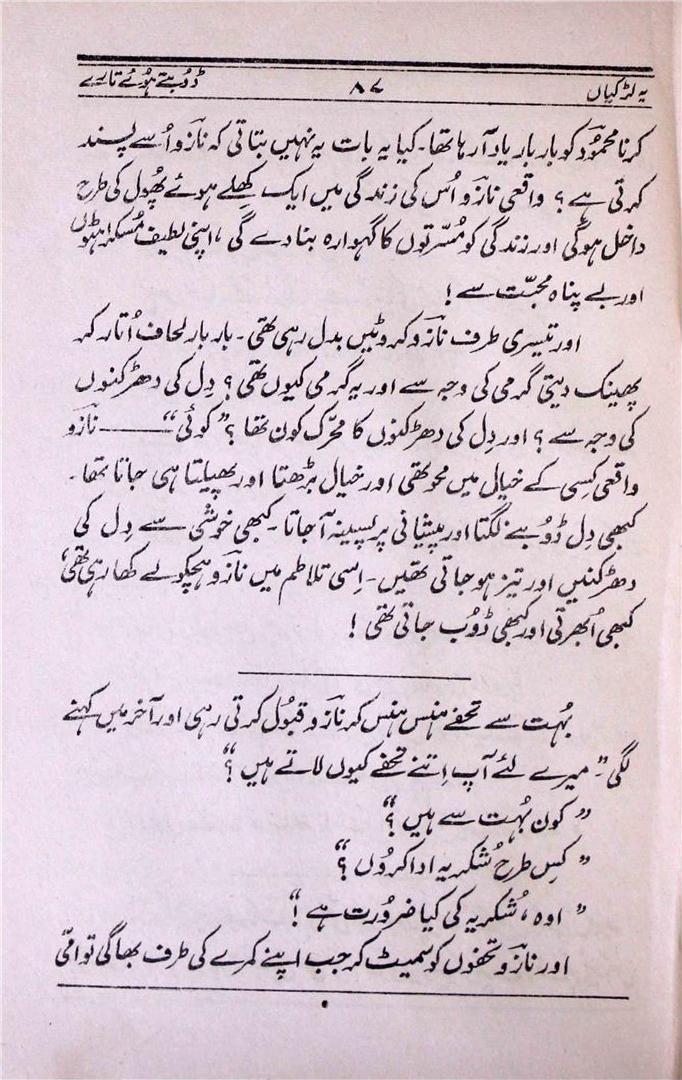 یہ لڑکیاں ۸۷ ڈوبتے ہوئے تارے
کرنا محمود کو بار بار یاد آ رہا تھا۔ کیا یہ بات یہ نہیں بتاتی کہ نازو اُسے پسند
کرتی ہے؟ واقعی نازو اُس کی زندگی میں ایک کھِلے ہوئے پھُول کی طرح
داخل ہوگی اور زندگی کو مُسرّتوں کا گہوارہ بنا دے گی، اپنی لطیف مُسکراہٹوں
اور بے پناہ محبّت سے!
اور تیسری طرف نازو کروٹیں بدل رہی تھی۔ بار بار لحاف اُتار کر
پھینک دیتی گرمی کی وجہ سے اور یہ گرمی کیوں تھی؟ دِل کی دھڑکنوں
کی وجہ سے؟ اور دِل کی دھڑکنوں کا محرّک کون تھا؟ ”کوئی“ ——— نازو
واقعی کِسی کے خیال میں محو تھی اور خیال بڑھتا اور پھیلتا ہی جاتا تھا۔
کبھی دِل ڈُوبنے لگتا اور پیشانی پر پسینہ آ جاتا۔ کبھی خوشی سے دِل کی
دھڑکنیں اور تیز ہو جاتی تھیں۔ اِسی تلاطم میں نازو ہچکولے کھا رہی تھی،
کبھی اُبھرتی اور کبھی ڈُوب جاتی تھی!
بہُت سے تحفے ہنس ہنس کر نازو قبُول کرتی رہی اور آخر میں کہنے
لگی۔ ”میرے لئے آپ اِتنے تحفے کیوں لاتے ہیں؟“
”کون بہُت سے ہیں؟“
”کِس طرح شُکریہ ادا کروں؟“
”اوہ، شُکریہ کی کیا ضرُورت ہے!“
اور نازو تحفوں کو سمیٹ کر جب اپنے کمرے کی طرف بھاگی تو امّی